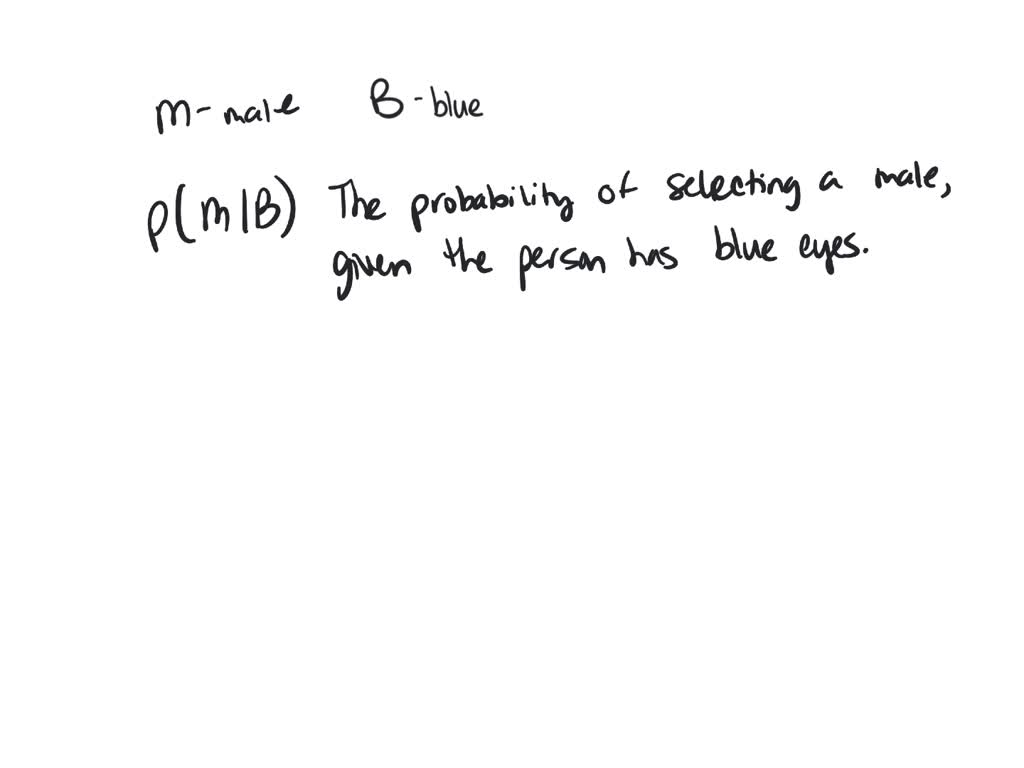 M- male B - blue
P(M|B) The probability of selecting a male,
given the person has blue eyes.